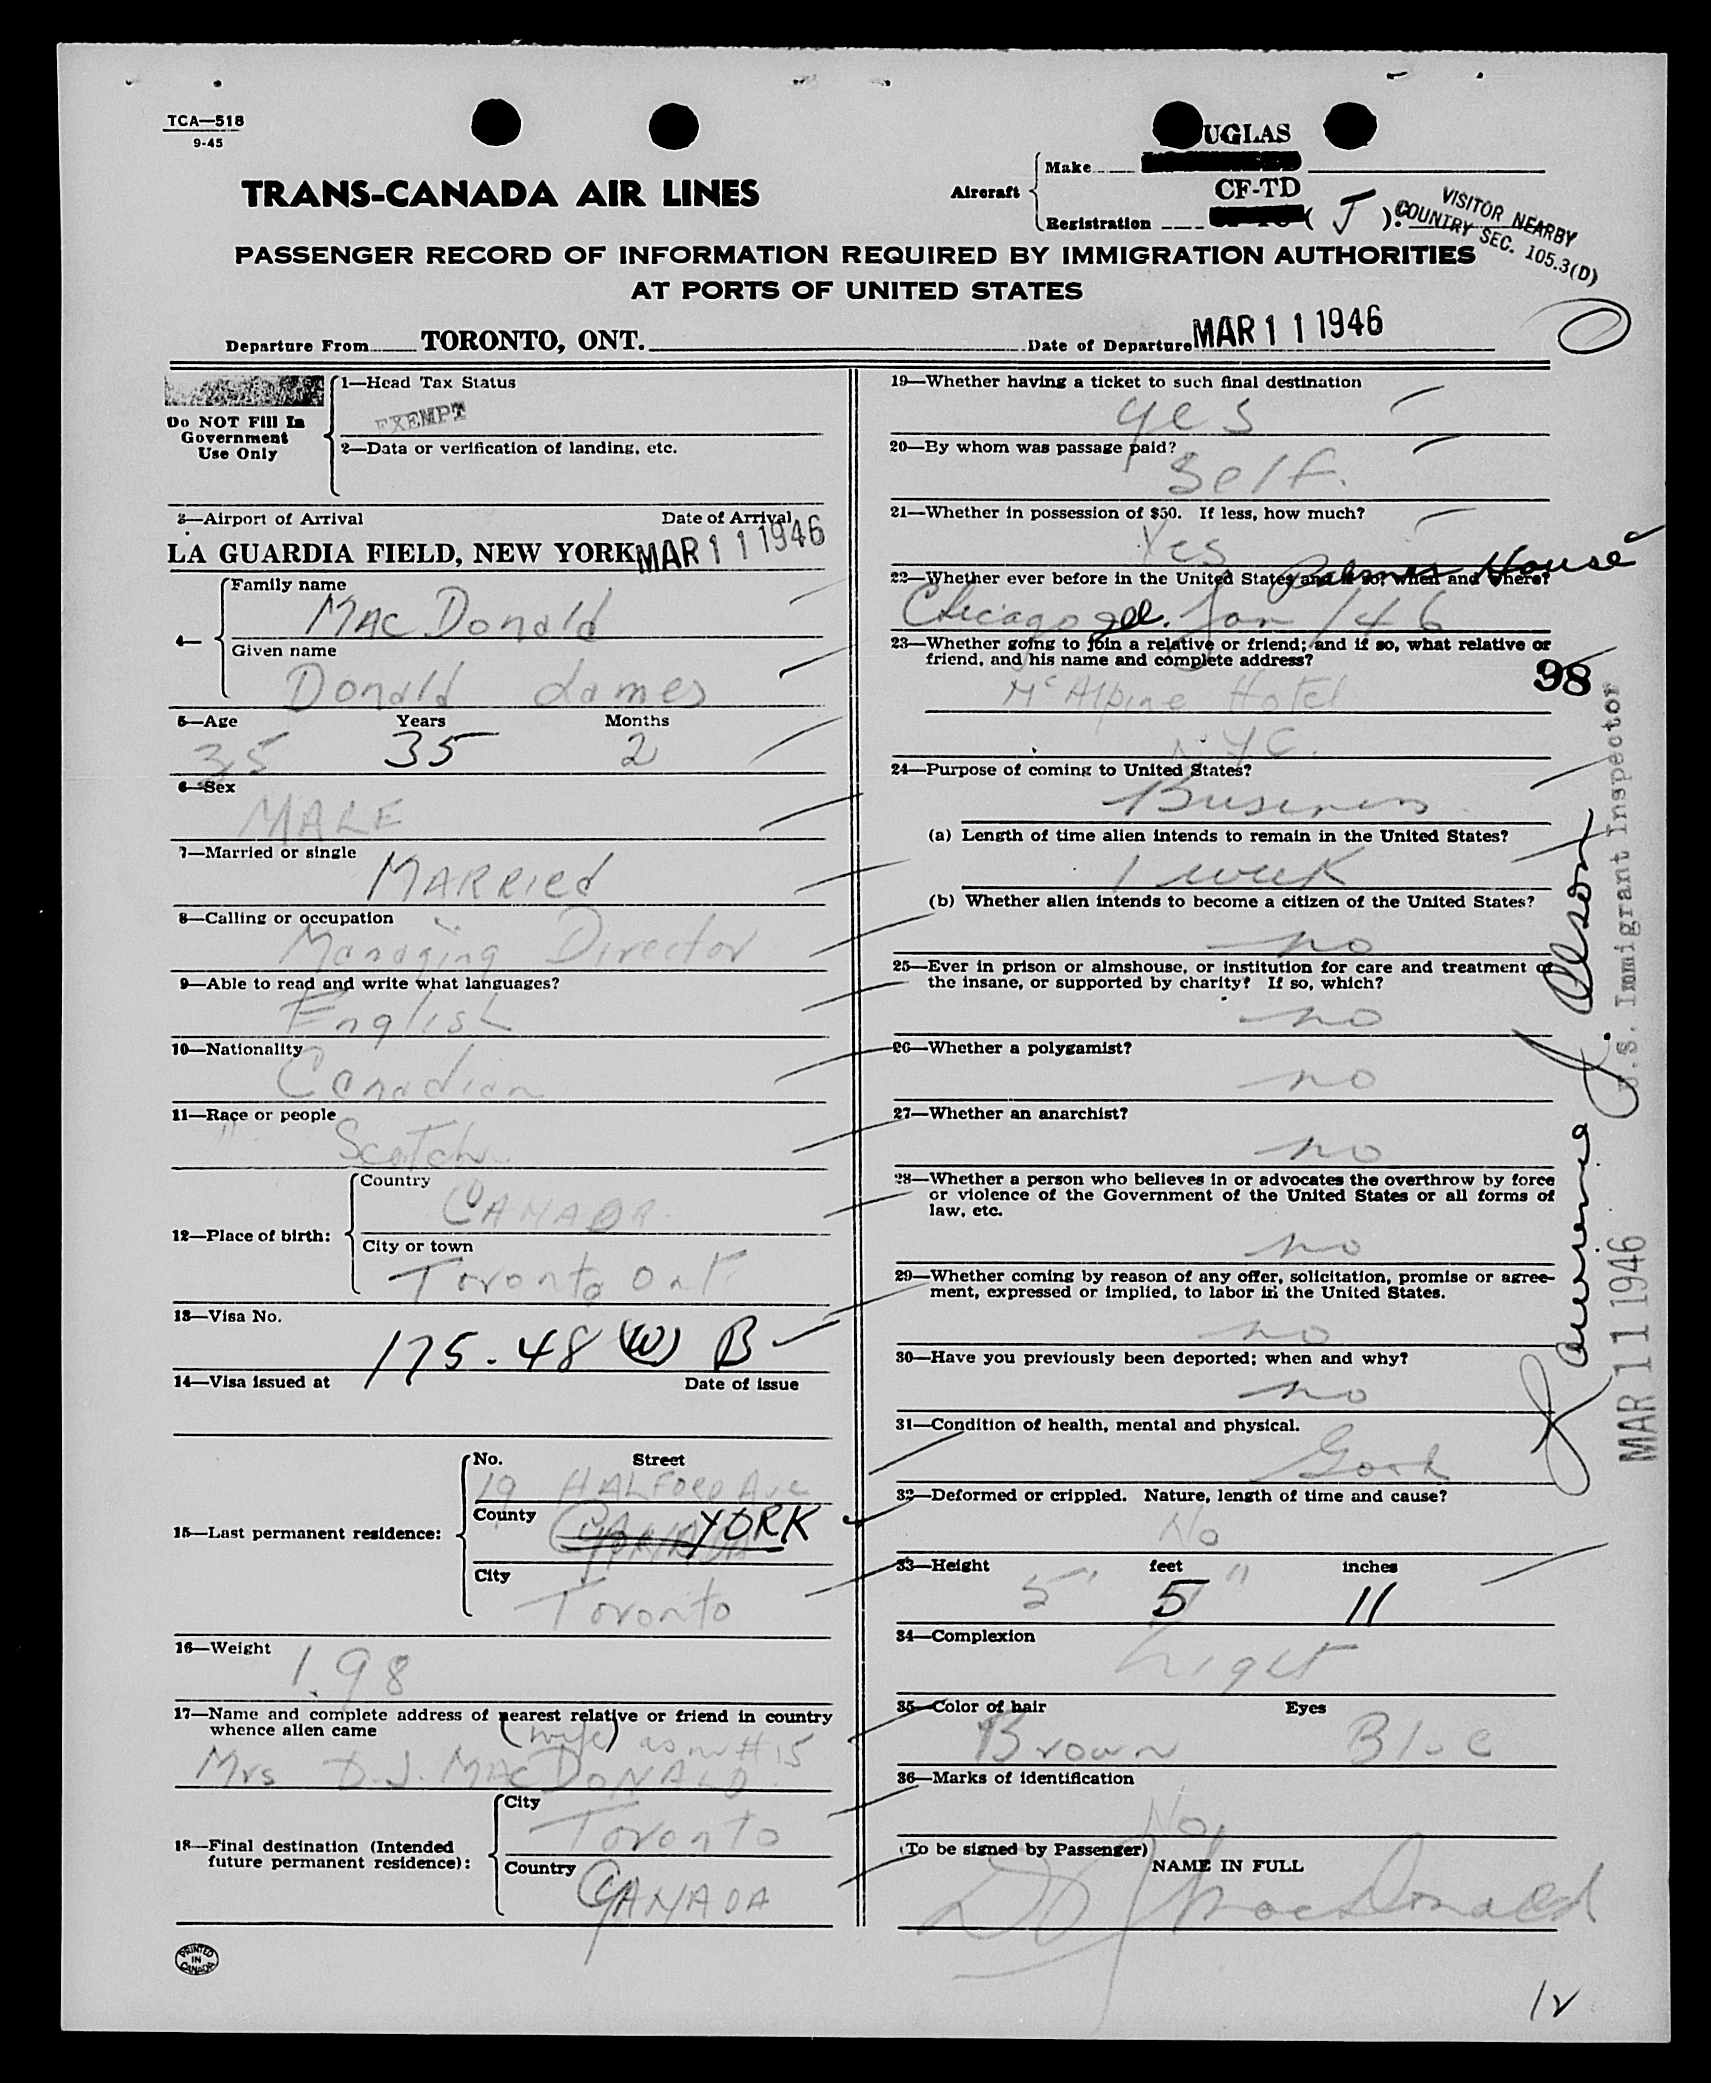 TCA—518
9-45
UGLAS
Aircraft
Make
TRANS-CANADA AIR LINES
CF-TD
Registration ( J ).
VISITOR NEARBY
COUNTRY SEC. 105.3(D)
PASSENGER RECORD OF INFORMATION REQUIRED BY IMMIGRATION AUTHORITIES
AT PORTS OF UNITED STATES
Departure From TORONTO, ONT.
Date of Departure MAR 11 1946
Do NOT Fill In
Government
Use Only
1—Head Tax Status
EXEMPT
2—Data or verification of landing, etc.
3—Airport of Arrival
Date of Arrival
LA GUARDIA FIELD, NEW YORK
MAR 11 1946
4—
Family name
MacDonald
Given name
Donald James
5—Age Years Months
35 35 2
6—Sex
MALE
7—Married or single
MARRIEd
8—Calling or occupation
Managing Director
9—Able to read and write what languages?
English
10—Nationality
Canadian
11—Race or people
Scotch
12—Place of birth:
Country
CANADA
City or town
Toronto Ont.
13—Visa No.
175.48 (W) B
14—Visa issued at
Date of issue
15—Last permanent residence:
No. Street
19 HALFORD Ave
County
YORK
City
Toronto
16—Weight
198
17—Name and complete address of nearest relative or friend in country
whence alien came
(wife) as in #15
Mrs D.J. MacDONALD
18—Final destination (Intended
future permanent residence):
City
Toronto
Country
CANADA
PRINTED
IN
CANADA
19—Whether having a ticket to such final destination
yes
20—By whom was passage paid?
Self.
21—Whether in possession of $50. If less, how much?
Yes
22—Whether ever before in the United States and if so, when and where?
Palmer House
Chicago Ill. Jan /46
23—Whether going to join a relative or friend; and if so, what relative or
friend, and his name and complete address?
98
McAlpine Hotel
NYC.
24—Purpose of coming to United States?
Business
(a) Length of time alien intends to remain in the United States?
1 week
(b) Whether alien intends to become a citizen of the United States?
no
25—Ever in prison or almshouse, or institution for care and treatment of
the insane, or supported by charity? If so, which?
no
26—Whether a polygamist?
no
27—Whether an anarchist?
no
28—Whether a person who believes in or advocates the overthrow by force
or violence of the Government of the United States or all forms of
law, etc.
no
29—Whether coming by reason of any offer, solicitation, promise or agree-
ment, expressed or implied, to labor in the United States.
no
30—Have you previously been deported; when and why?
no
31—Condition of health, mental and physical.
Good
32—Deformed or crippled. Nature, length of time and cause?
No
33—Height feet inches
5' 5 11
34—Complexion
Light
35—Color of hair Eyes
Brown Blue
36—Marks of identification
No
(To be signed by Passenger)
NAME IN FULL
D J MacDonald
U.S. Immigrant Inspector
MAR 11 1946